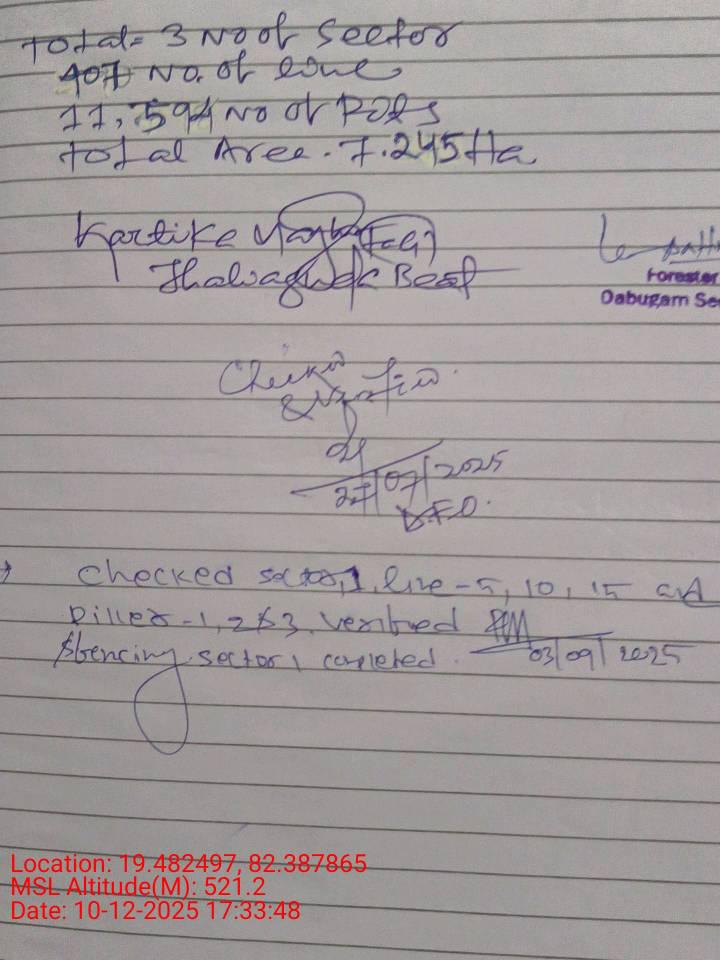 Total= 3 No of Sector
407 No. of line
11,594 No of Pols
total Area. 7.245 Ha
Kartike (F.G)
Beat
Forester
Dabugam Se
Checked
&
27/07/2025
D.F.O.
Checked sector, 1, line - 5, 10, 15 and
Piller - 1, 2 & 3. verified
sector 1 completed. 03/09/2025
Location: 19.482497, 82.387865
MSL Altitude(M): 521.2
Date: 10-12-2025 17:33:48